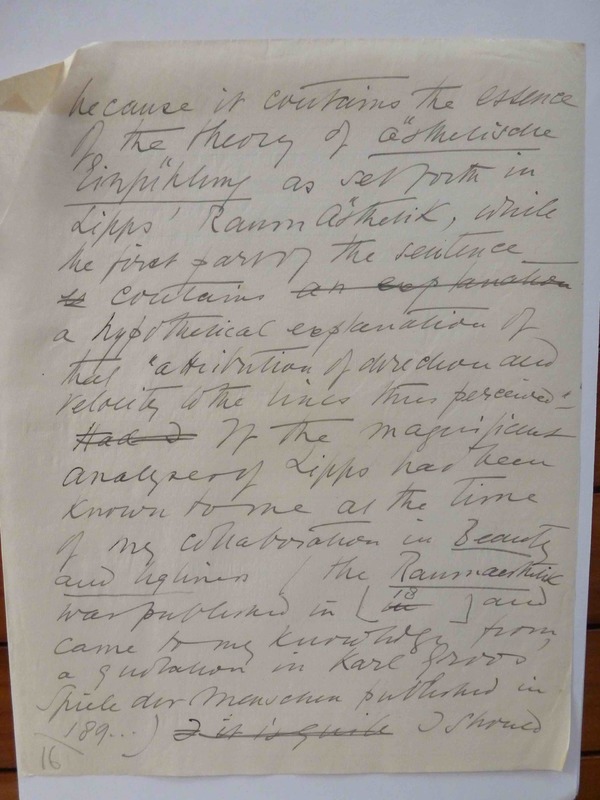 because it contains the essence
of the theory of aësthetische
Einfühlung as set forth in
Lipps' Raum Aësthetik, while
the first part of the sentence
is contains an explanation
a hypothetical explanation of
that "attribution of direction and
velocity to the lines thus perceived"
Had I If the magnificent
analyses of Lipps had been
known to me at the time
of my collaboration in Beauty
and Ugliness (the Raumaesthetik
was published in [18 ] and
came to my knowledge from
a quotation in Karl Groos
Spiele der Menschen published in
189...) I it is quite I should
16